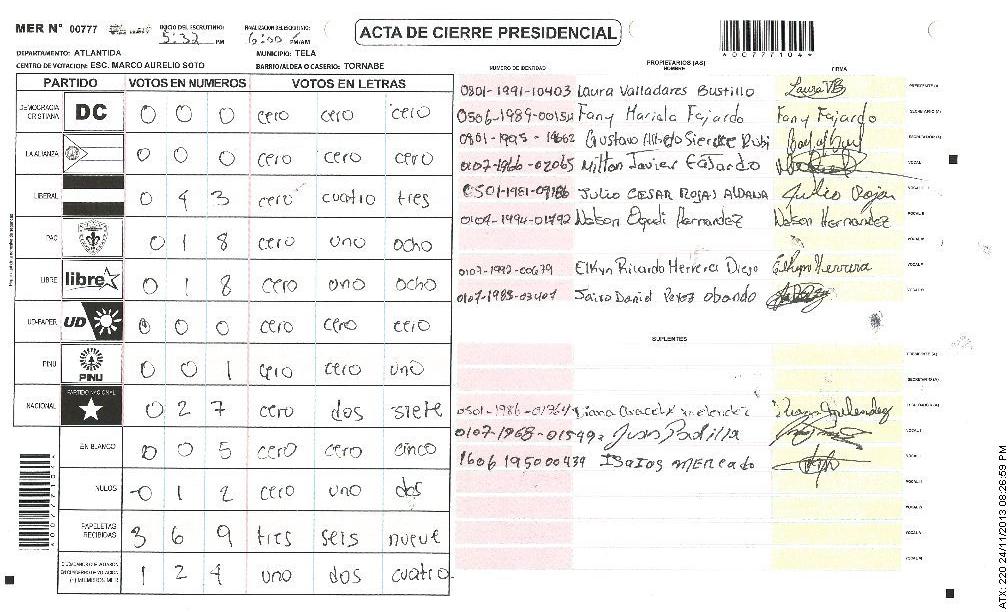 MER Nº 00777
INICIO DEL ESCRUTINIO:
5:32 PM
FINALIZACION DEL ESCRUTINIO:
6:00 PM/AM
ACTA DE CIERRE PRESIDENCIAL
*00777104*
DEPARTAMENTO: ATLANTIDA
MUNICIPIO: TELA
CENTRO DE VOTACION: ESC. MARCO AURELIO SOTO
BARRIO/ALDEA O CASERIO: TORNABE
PARTIDO VOTOS EN NUMEROS VOTOS EN LETRAS
DEMOCRACIA CRISTIANA DC 0 0 0 cero cero cero
LA ALIANZA 0 0 0 cero cero cero
LIBERAL 0 4 3 cero cuatro tres
PAC 0 1 8 cero uno ocho
LIBRE libre 0 1 8 cero uno ocho
UD-FAPER UD 0 0 0 cero cero cero
PINU PINU 0 0 1 cero cero uno
NACIONAL PARTIDO NACIONAL 0 2 7 cero dos siete
EN BLANCO 0 0 5 cero cero cinco
NULOS 0 1 2 cero uno dos
PAPELETAS RECIBIDAS 3 6 9 tres seis nueve
1 2 4 uno dos cuatro
NUMERO DE IDENTIDAD
PROPIETARIOS (AS)
NOMBRE
FIRMA
0801-1991-10403 Laura Valladares Bustillo Laura VB PRESIDENTE (A)
Fany Mariela Fajardo Fany Fajardo SECRETARIO (A)
0801-1995-19662 Gustavo Alfredo ESCRUTADOR (A)
0107-1966-02065 Milton Javier Fajardo VOCAL I
0501-1981-09186 Julio CESAR ROJAS ALDANA Julio Rojas VOCAL II
0107-1994-01792 Nelson Hernandez Nelson Hernandez VOCAL III
VOCAL IV
0107-1992-00679 Elkyn Ricardo Herrera Diego Elkyn Herrera VOCAL V
0107-1985-03407 Jairo Daniel Perez Obando VOCAL VI
SUPLENTES
PRESIDENTE (A)
SECRETARIO (A)
ESCRUTADOR (A)
0107-1968-01549 Juan Padilla VOCAL I
1606 195000439 Isaias MERCADO VOCAL II
VOCAL III
VOCAL IV
VOCAL V
VOCAL VI
*00777104*
ATX: 220 24/11/2013 08:26:59 PM